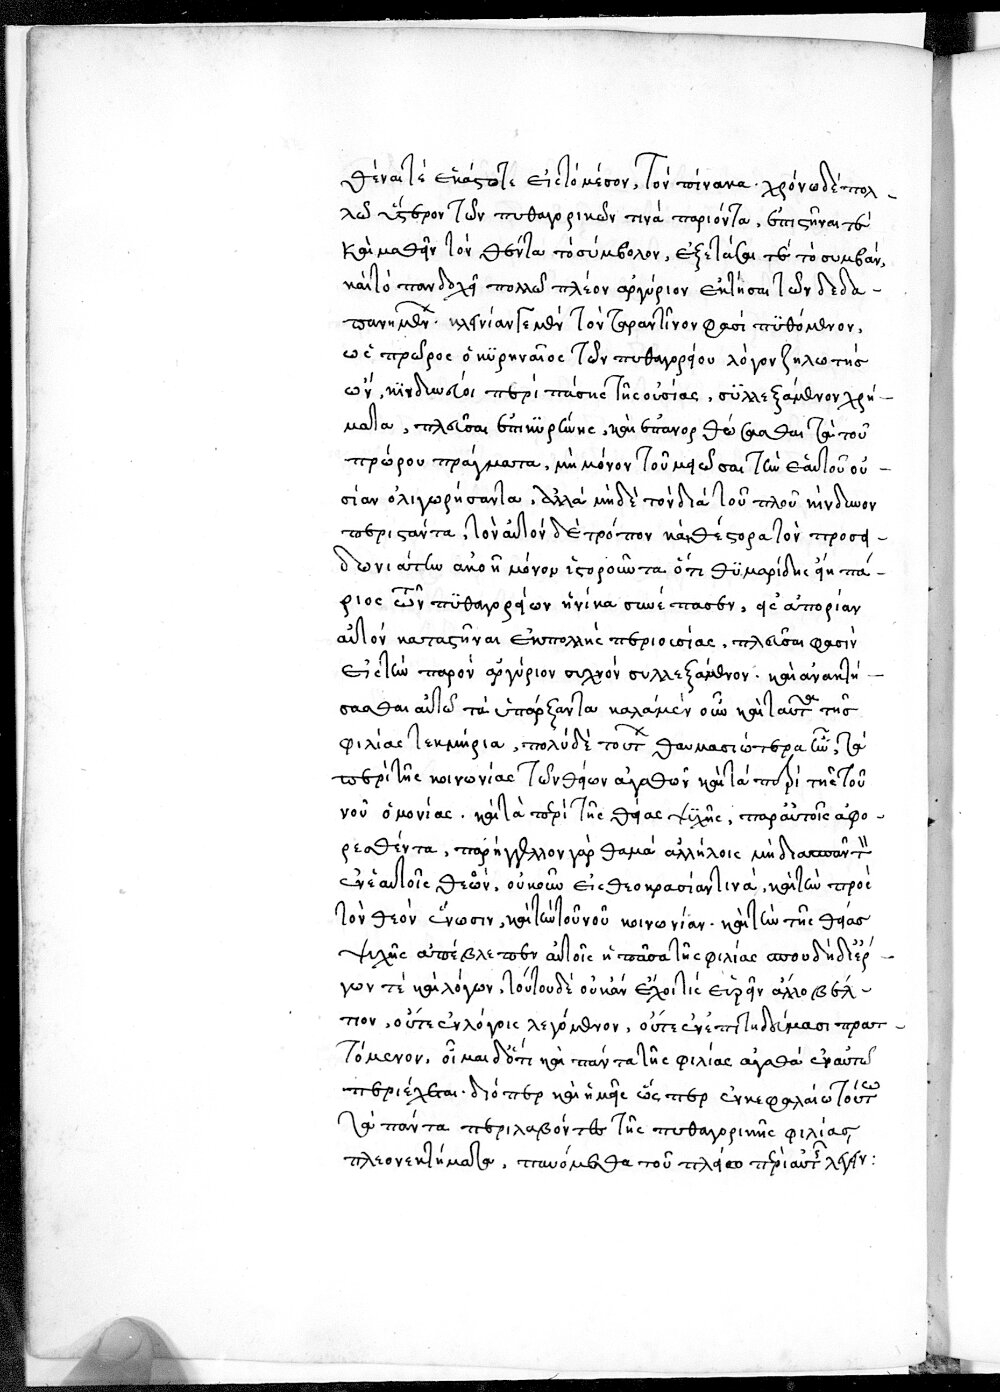 θέναι τέ ἑκάστοτε εἰς τὸ μέσον, τὸν πίνακα· χρόνω δὲ πολ-
λῶ ὕστερον τῶν πυθαγορικῶν τινὰ παριόντα, ἐπιστῆναι τὲ
καὶ μαθεῖν τὸν θέντα τὸ σύμβολον, ἐξετάσαι τὲ τὸ συμβάν,
καὶ τὸ πανδοχεῖ πολλῶ πλέον ἀργύριον ἐκτῆσαι τῶν δεδα-
πανημένων· κλεινίαν γε μὲν τὸν ταραντῖνον φασὶ πυθόμενον,
ὡς πρῶρος ὁ κυρηναῖος τῶν πυθαγορείου λόγον ζηλωτὴς
ὤν, κινδυνεύοι περὶ πάσης τῆς οὐσίας, συλλεξάμενον χρή-
ματα, πλεῦσαι ἐπὶ κυρήνης, καὶ ἐπανορθώσασθαι τὰ τοῦ
πρώρου πράγματα, μὴ μόνον τοῦ μειῶσαι τὴν ἑαυτοῦ οὐ-
σίαν ὀλιγωρήσαντα, ἀλλὰ μηδὲ τὸν διὰ τοῦ πλοῦ κίνδυνον
περιστάντα, τὸν αὐτὸν δὲ τρόπον καὶ θέστορα τὸν ποσει-
δωνιάτην ἀκοῆ μόνον ἱστοροῦντα ὅτι θυμαρίδης εἴη πά-
ριος τῶν πυθαγορείων ἡνίκα συνέπεσεν, εἰς ἀπορίαν
αὐτὸν καταστῆναι ἐκ πολλῆς περιουσίας, πλεῦσαι φασὶν
εἰς τὴν πάρον ἀργύριον συχνὸν συλλεξάμενον· καὶ ἀνακτή-
σασθαι αὐτῶ τὰ ὑπάρξαντα καλὰ μὲν οὖν καὶ ταῦτα τῆς
φιλίας τεκμήρια, πολὺ δὲ τούτων θαυμασιώτερα ἦν, τὰ
περὶ τῆς κοινωνίας τῶν θείων ἀγαθῶν καὶ τὰ περὶ τῆς τοῦ
νοῦ ὁμονίας· καὶ τὰ περὶ τῆς θείας ψυχῆς, παρ' αὐτοῖς ἀφο-
ρεσθέντα, παρήγγελλον γὰρ θαμὰ ἀλλήλοις μὴ διασπᾶν τὸν
ἐν ἑαυτοῖς θεόν, οὐκοῦν εἰς θεοκρασίαν τινά, καὶ τὴν πρὸς
τὸν θεὸν ἕνωσιν, καὶ τὴν τοῦ νοῦ κοινωνίαν· καὶ τὴν τῆς θείας
ψυχῆς ἀπέβλεπεν αὐτοῖς ἡ πᾶσα τῆς φιλίας σπουδὴ δι' ἔρ-
γων τὲ καὶ λόγων, τούτου δὲ οὐκ ἂν ἔχοι τίς εὑρεῖν ἄλλο βέλ-
τιον, οὔτε ἐν λόγοις λεγόμενον, οὔτε ἐν ἐπιτηδεύμασι πρατ-
τόμενον, οἶμαι δ' ὅτι καὶ πάντα τῆς φιλίας ἀγαθὰ ἐν αὐτῶ
περιέχεται· διόπερ καὶ ἡμεῖς ὥσπερ ἐν κεφαλαίω τούτω
τὰ πάντα περιλαβόντες τῆς πυθαγορικῆς φιλίας,
πλεονεκτήματα, παυόμεθα τοῦ πλείω περὶ αὐτῆς λέγειν: